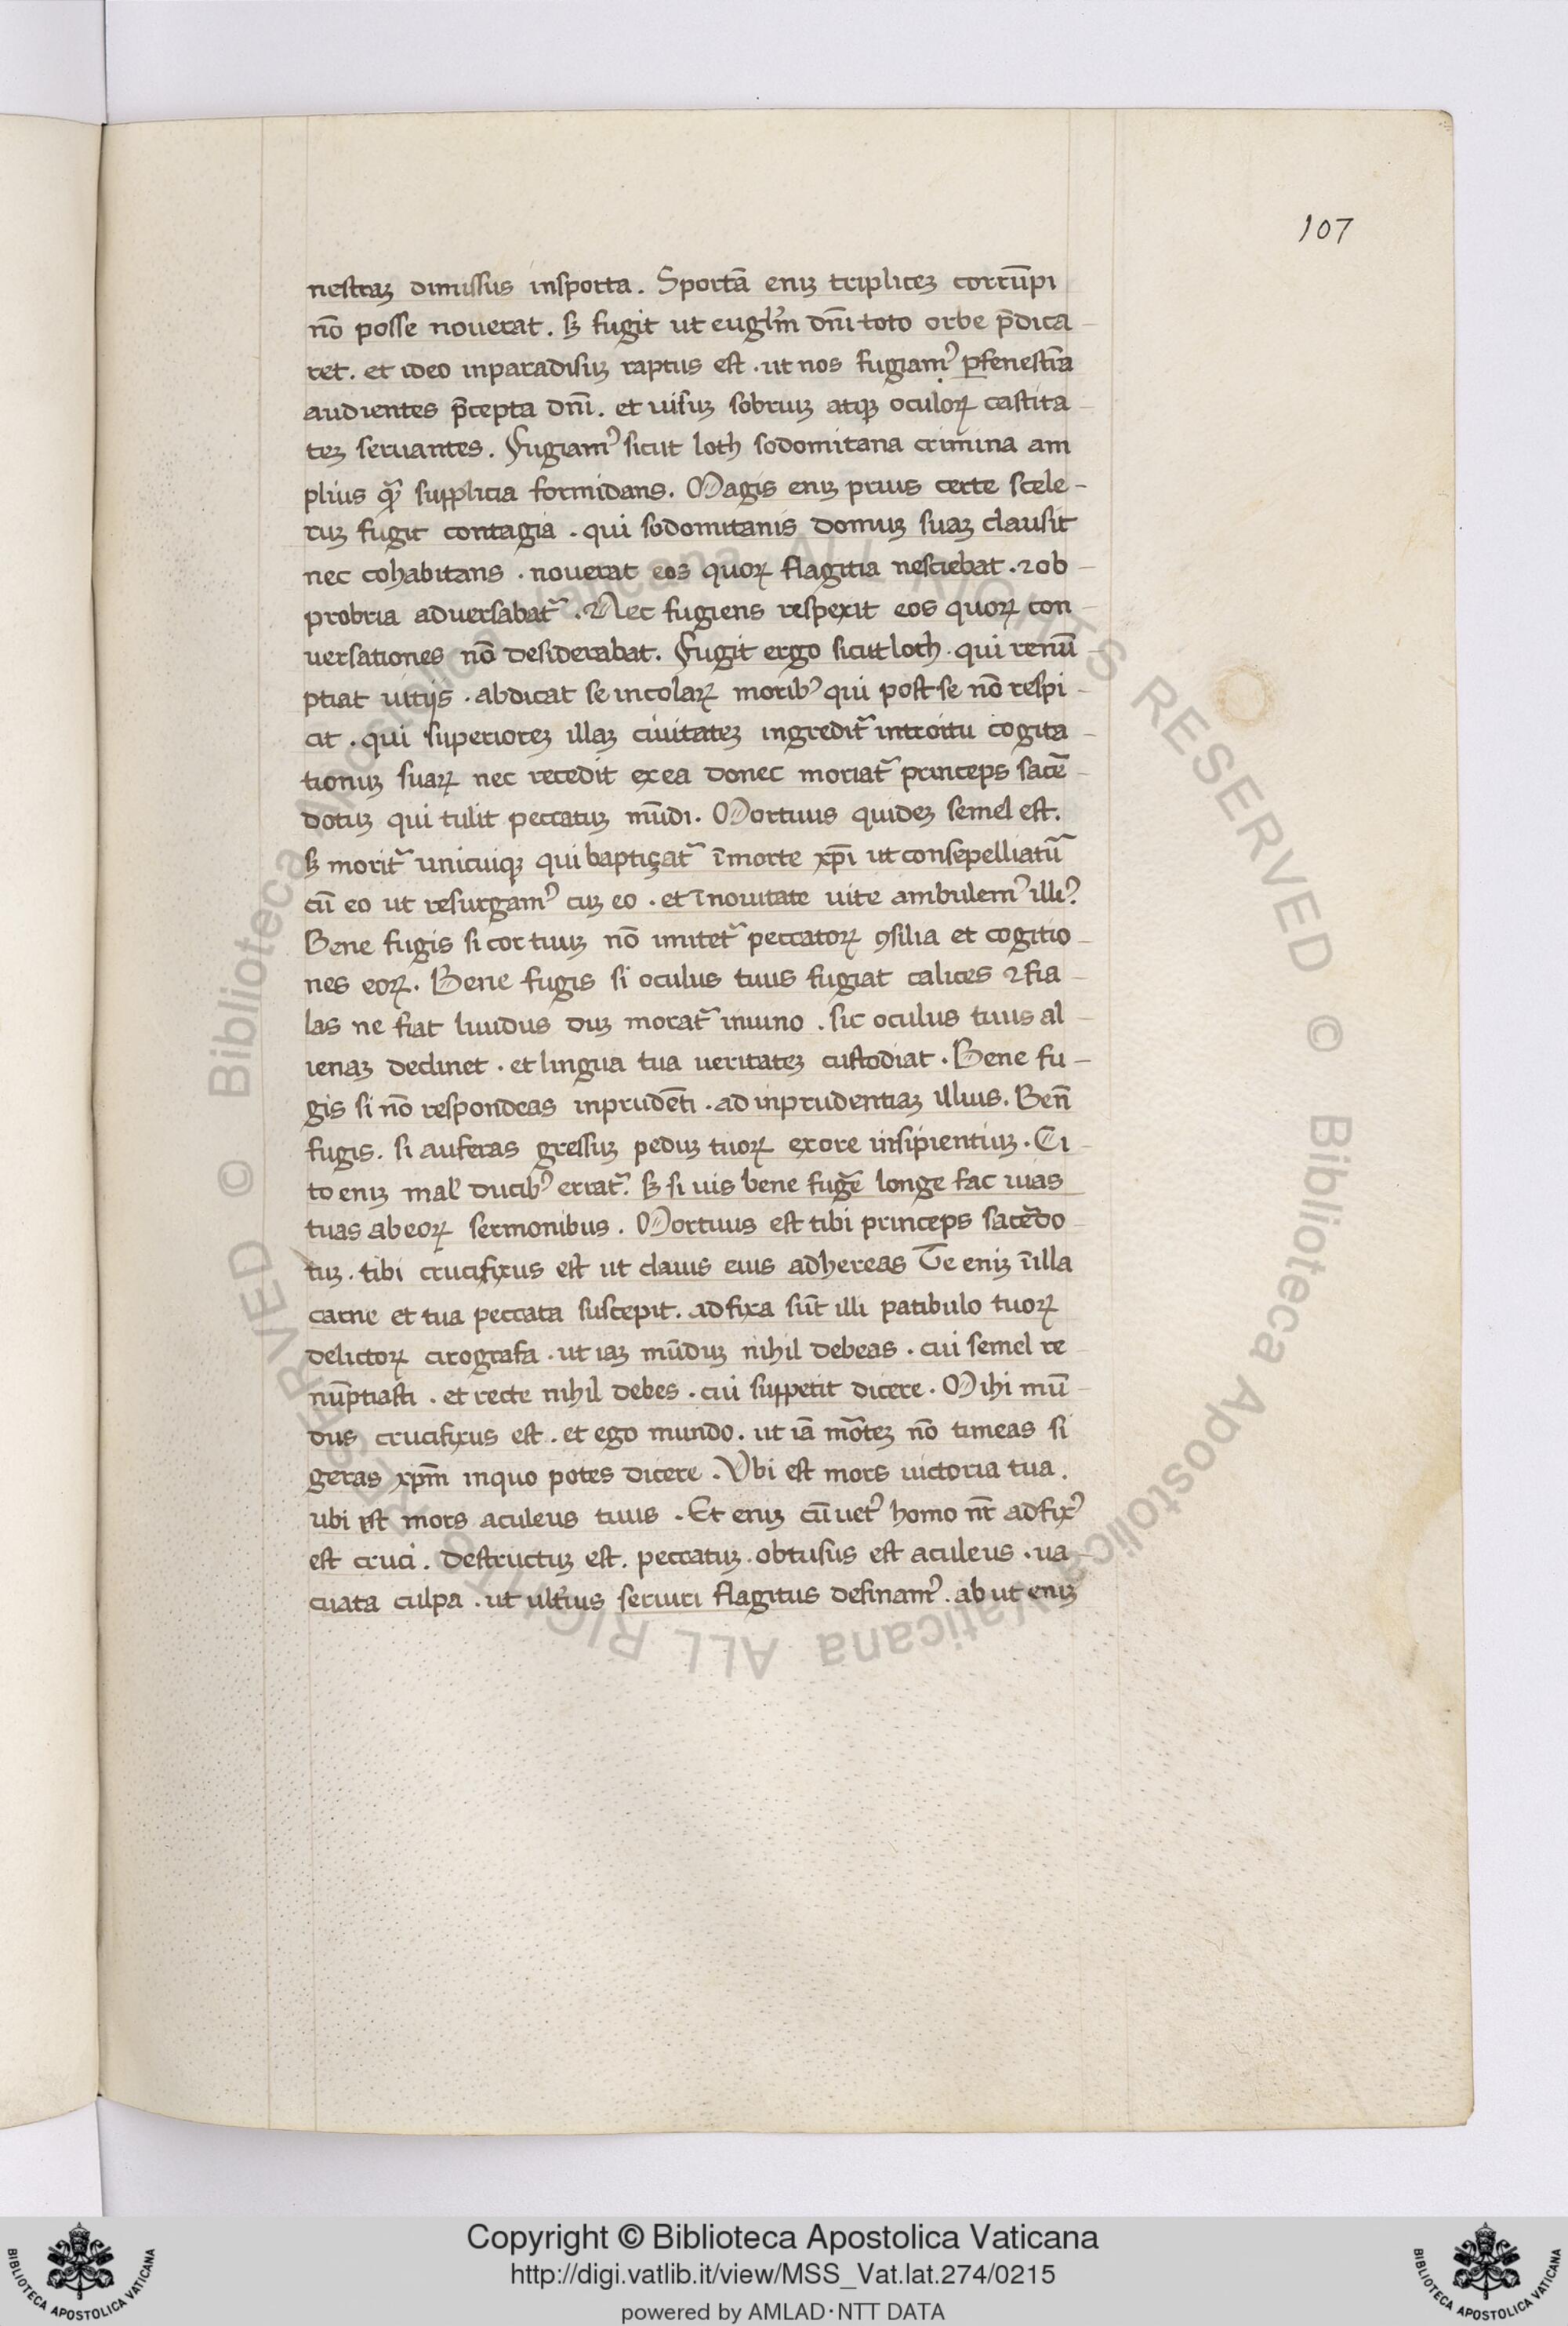 107
nestraꝫ dimissus insporta. Sportā eniꝫ tripliceꝫ corrūpi
nō posse nouerat. sꝫ fugit ut euglīm dn̄i toto orbe p̄dica-
ret. et ideo inparadisuꝫ raptus est. ut nos fugiamꝰ ꝑfenestrā
audientes p̄cepta dn̄i. et uisuꝫ sobriuꝫ atqꝫ oculoꝝ castita-
teꝫ seruantes. Fugiamꝰ sicut loth sodomitana crimina am
plius quā supplicia formidans. Magis eniꝫ prius certe scele-
ruꝫ fugit contagia. qui sodomitanis domuꝫ suaꝫ clausit
nec cohabitans. nouerat eos quoꝝ flagitia nesciebat. ⁊ ob-
probria aduersabat᷑. Nec fugiens respexit eos quoꝝ con-
uersationes nō desiderabat. Fugit ergo sicut loth. qui renū-
ptiat uitijs. abdicat se incolaꝝ moribꝰ qui post se nō respi-
cit. qui superioreꝫ illaꝫ ciuitateꝫ ingredit᷑ introitu cogita-
tionuꝫ suaꝝ nec recedit ex ea donec moriat᷑ princeps sacē-
dotuꝫ qui tulit peccatuꝫ mūdi. Mortuus quideꝫ semel est.
sꝫ morit᷑ unicuiqꝫ qui baptiçat᷑ ī morte xp̄i ut consepelliatu᷑
cū eo ut resurgamꝰ cuꝫ eo. et ī nouitate uite ambulemꝰ illiꝰ.
Bene fugis si cor tuuꝫ nō imitet᷑ peccatoꝝ ꝯsilia et cogitio-
nes eoꝝ. Bene fugis si oculus tuus fugiat calices ⁊ fia-
las ne fiat liuidus duꝫ morat᷑ inuino. sic oculus tuus al-
ienaꝫ declinet. et lingua tua ueritateꝫ custodiat. Bene fu-
gis si nō respondeas inprudēti. ad inprudentiaꝫ illius. Ben̄
fugis. si auferas gressuꝫ peduꝫ tuoꝝ exore insipientiuꝫ. Ci-
to eniꝫ mal' ducibꝰ errat᷑. sꝫ si uis bene fugē longe fac uias
tuas ab eoꝝ sermonibus. Mortuus est tibi princeps sacēdo-
tuꝫ. tibi crucifixus est ut clauis eius adhereas Te eniꝫ ī illa
carne et tua peccata suscepit. adfixa sūt illi patibulo tuoꝝ
delictoꝝ cirografa. ut iaꝫ mūduꝫ nihil debeas. cui semel re-
nūptiasti. et recte nihil debes. cui suppetit dicere. Mihi mū-
dus crucifixus est. et ego mundo. ut iā mōteꝫ nō timeas si
geras xp̄m inquo potes dicere. Vbi est mors uictoria tua.
ubi est mors aculeus tuus. Et eniꝫ cū uetꝰ homo nr̄ adfixꝰ
est cruci. destructuꝫ est. peccatuꝫ. obtusus est aculeus. ua-
cuata culpa. ut ultīus seruiri flagitus definamꝰ. ab ut eniꝫ
© Biblioteca Apostolica Vaticana ALL RIGHTS RESERVED
© Biblioteca Apostolica Vaticana ALL RIGHTS RESERVED
Copyright © Biblioteca Apostolica Vaticana
http://digi.vatlib.it/view/MSS_Vat.lat.274/0215
powered by AMLAD·NTT DATA
BIBLIOTECA APOSTOLICA VATICANA
BIBLIOTECA APOSTOLICA VATICANA